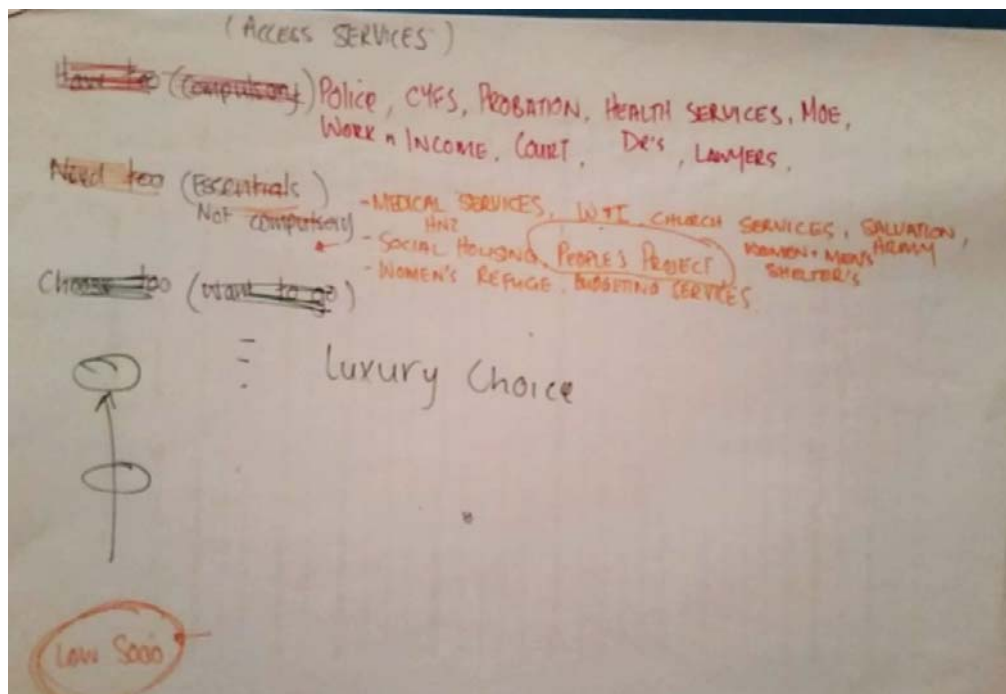 (ACCESS SERVICES)
Have too (Compulsory) Police, CYFS, PROBATION, HEALTH SERVICES, MOE,
WORK n INCOME, COURT, DR'S, LAWYERS,
Need too (Essentials)
Not compulsory
- MEDICAL SERVICES, CHURCH SERVICES, SALVATION ARMY,
HNZ
- SOCIAL HOUSING, PEOPLE'S PROJECT WOMEN + MEN'S SHELTER'S
- WOMEN'S REFUGE, BUDGETING SERVICES.
Choose too (want to go)
Luxury Choice
Low